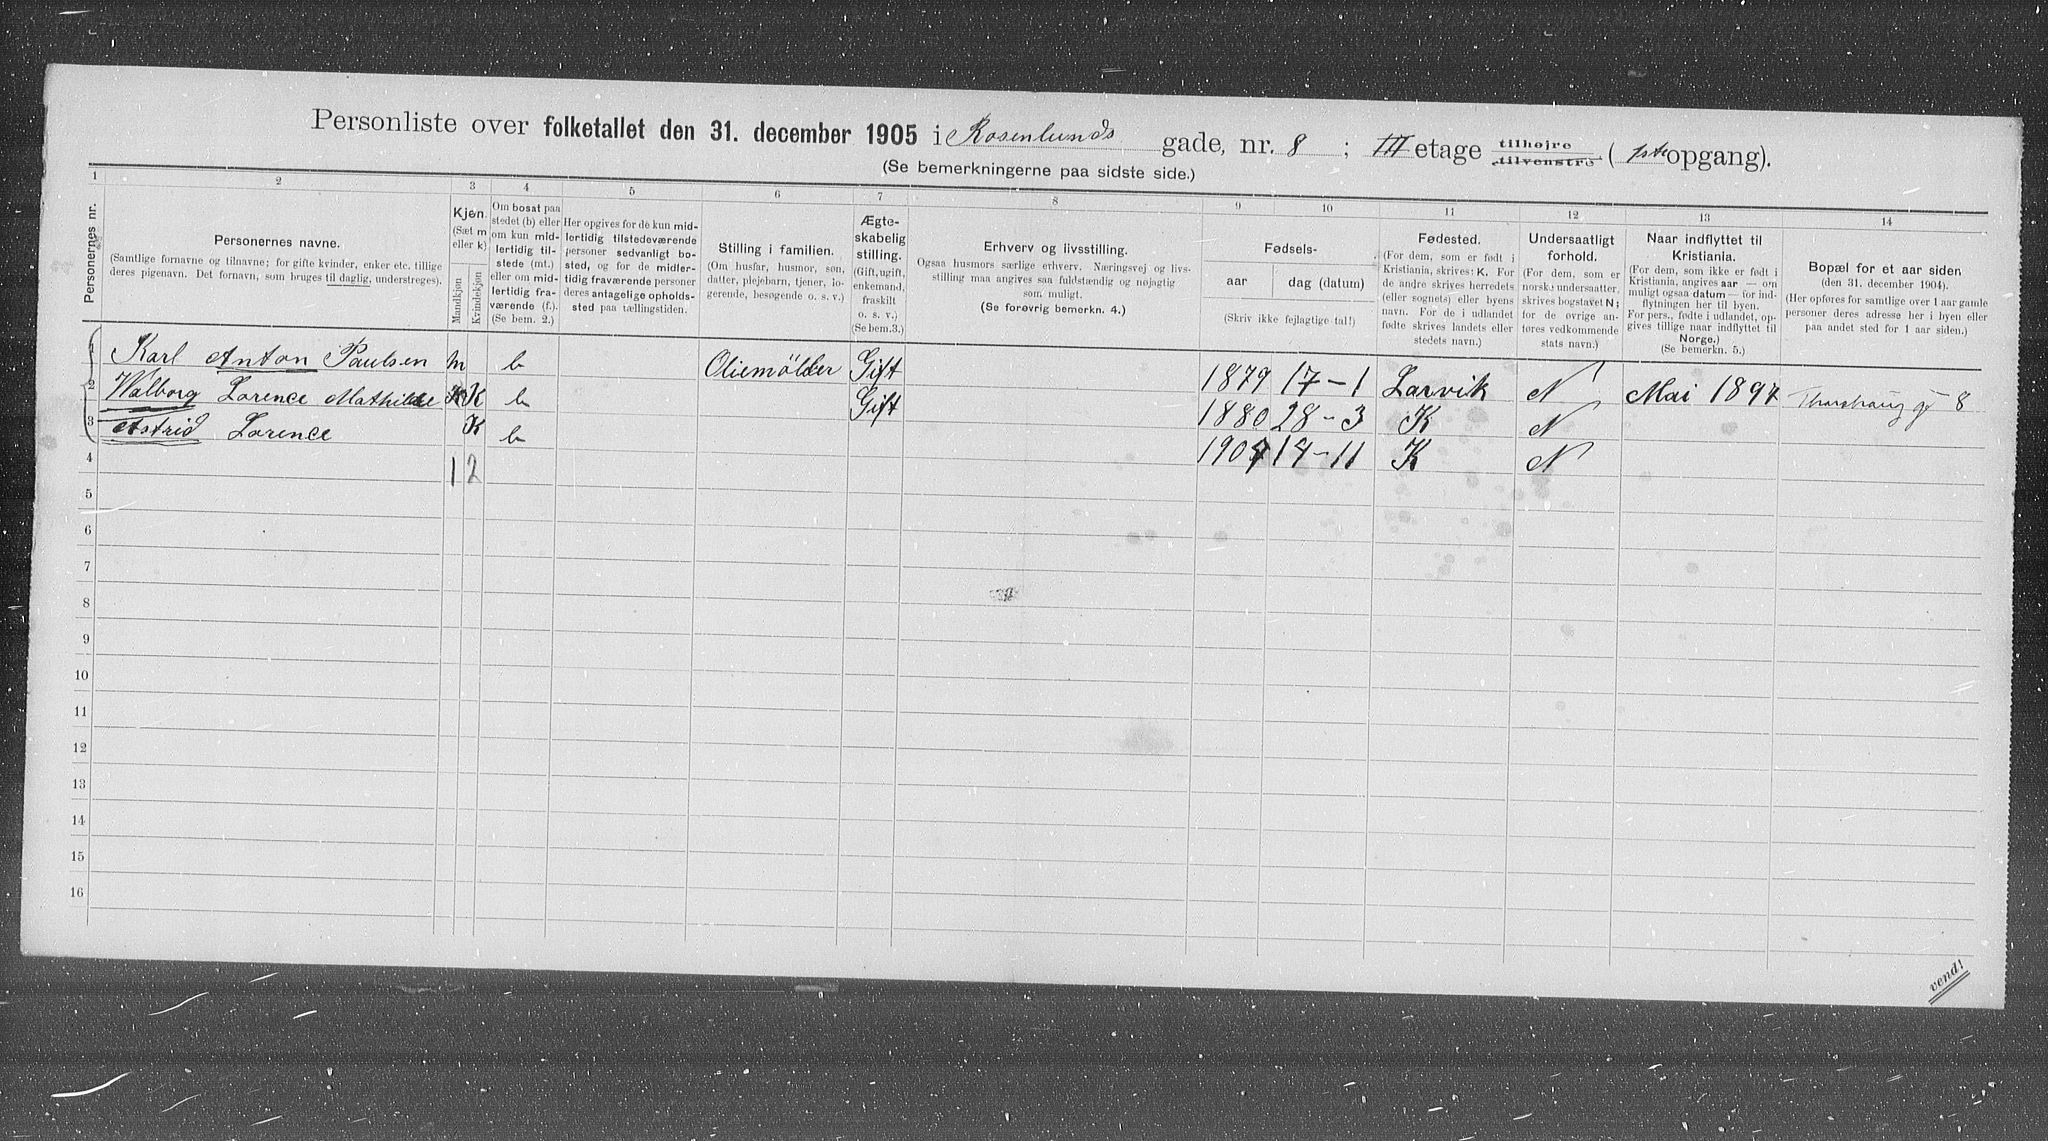 Personliste over folketallet den 31. december 1905 i Rosenlunds gade, nr. 8 ; III etage tilhøjre tilvenstre ( 1ste opgang).
(Se bemerkningerne paa sidste side.)
1 2 3 4 5 6 7 8 9 10 11 12 13 14
Personernes nr.
Personernes navne.
(Samtlige fornavne og tilnavne; for gifte kvinder, enker etc. tillige
deres pigenavn. Det fornavn, som bruges til daglig, understreges).
Kjøn.
(Sæt m
eller k)
Mandkjøn
Kvindekjøn
Om bosat paa
stedet (b) eller
om kun mid-
lertidig til-
stede (mt.)
eller om mid-
lertidig fra-
værende (f.).
(Se bem. 2.)
Her opgives for de kun mid-
lertidig tilstedeværende
personer sedvanligt bo-
sted, og for de midler-
tidig fraværende personer
deres antagelige opholds-
sted paa tællingstiden.
Stilling i familien.
(Om husfar, husmor, søn,
datter, plejebarn, tjener, lo-
gerende, besøgende o. s. v.)
Ægte-
skabelig
stilling.
(Gift, ugift,
enkemand,
fraskilt
o. s. v.)
(Se bem.3.)
Erhverv og livsstilling.
Ogsaa husmors særlige erhverv. Næringsvej og livs-
stilling maa angives saa fuldstændig og nøjagtig
som muligt.
(Se forøvrig bemerkn. 4.)
Fødsels-
aar dag (datum)
(Skriv ikke fejlagtige tal!)
Fødested.
(For dem, som er født i
Kristiania, skrives: K. For
de andre skrives herredets
(eller sognets) eller byens
navn. For de i udlandet
fødte skrives landets eller
stedets navn.)
Undersaatligt
forhold.
(For dem, som er
norske undersaatter,
skrives bogstavet N;
for de øvrige an-
føres vedkommende
stats navn.)
Naar indflyttet til
Kristiania.
(For dem, som ikke er født i
Kristiania, angives aar — om
muligt ogsaa datum — for ind-
flytningen her til byen.
For pers., fødte i udlandet, op-
gives tillige naar indflyttet til
Norge.)
(Se bemerkn. 5.)
Bopæl for et aar siden
(den 31. december 1904).
(Her opføres for samtlige over 1 aar gamle
personer deres adresse her i byen eller
paa andet sted for 1 aar siden.)
1 Karl Anton Paulsen m b Oliemölder Gift 1879 17-1 Larvik N Mai 1897 8
2 Walborg Lorence Mathilde K b Gift 1880 28-3 K N
3 Astrid Lorence K b 1904 14-11 K N
4 1 2
5
6
7
8
9
10
11
12
13
14
15
16
vend!